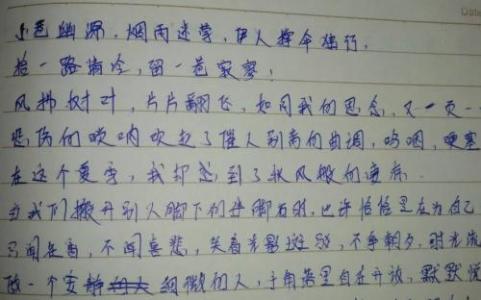 小巷幽深，烟雨迷蒙，伊人撑伞独行，
拾一路清冷，留一巷寂寥，
风拂树叶，片片翻飞，如同我的思念，又一页一
悲伤的唢呐吹起了催人别离的曲调，呜咽，哽塞
在这个夏季，我却感到了秋风般的凄凉.
当我们搬开别人脚下的绊脚石时，也许恰恰是在为自己
，不问喜悲，笑看光影斑驳，不争朝夕，时光流
做一个安静细微的人，于角落里自在开放，默默悦